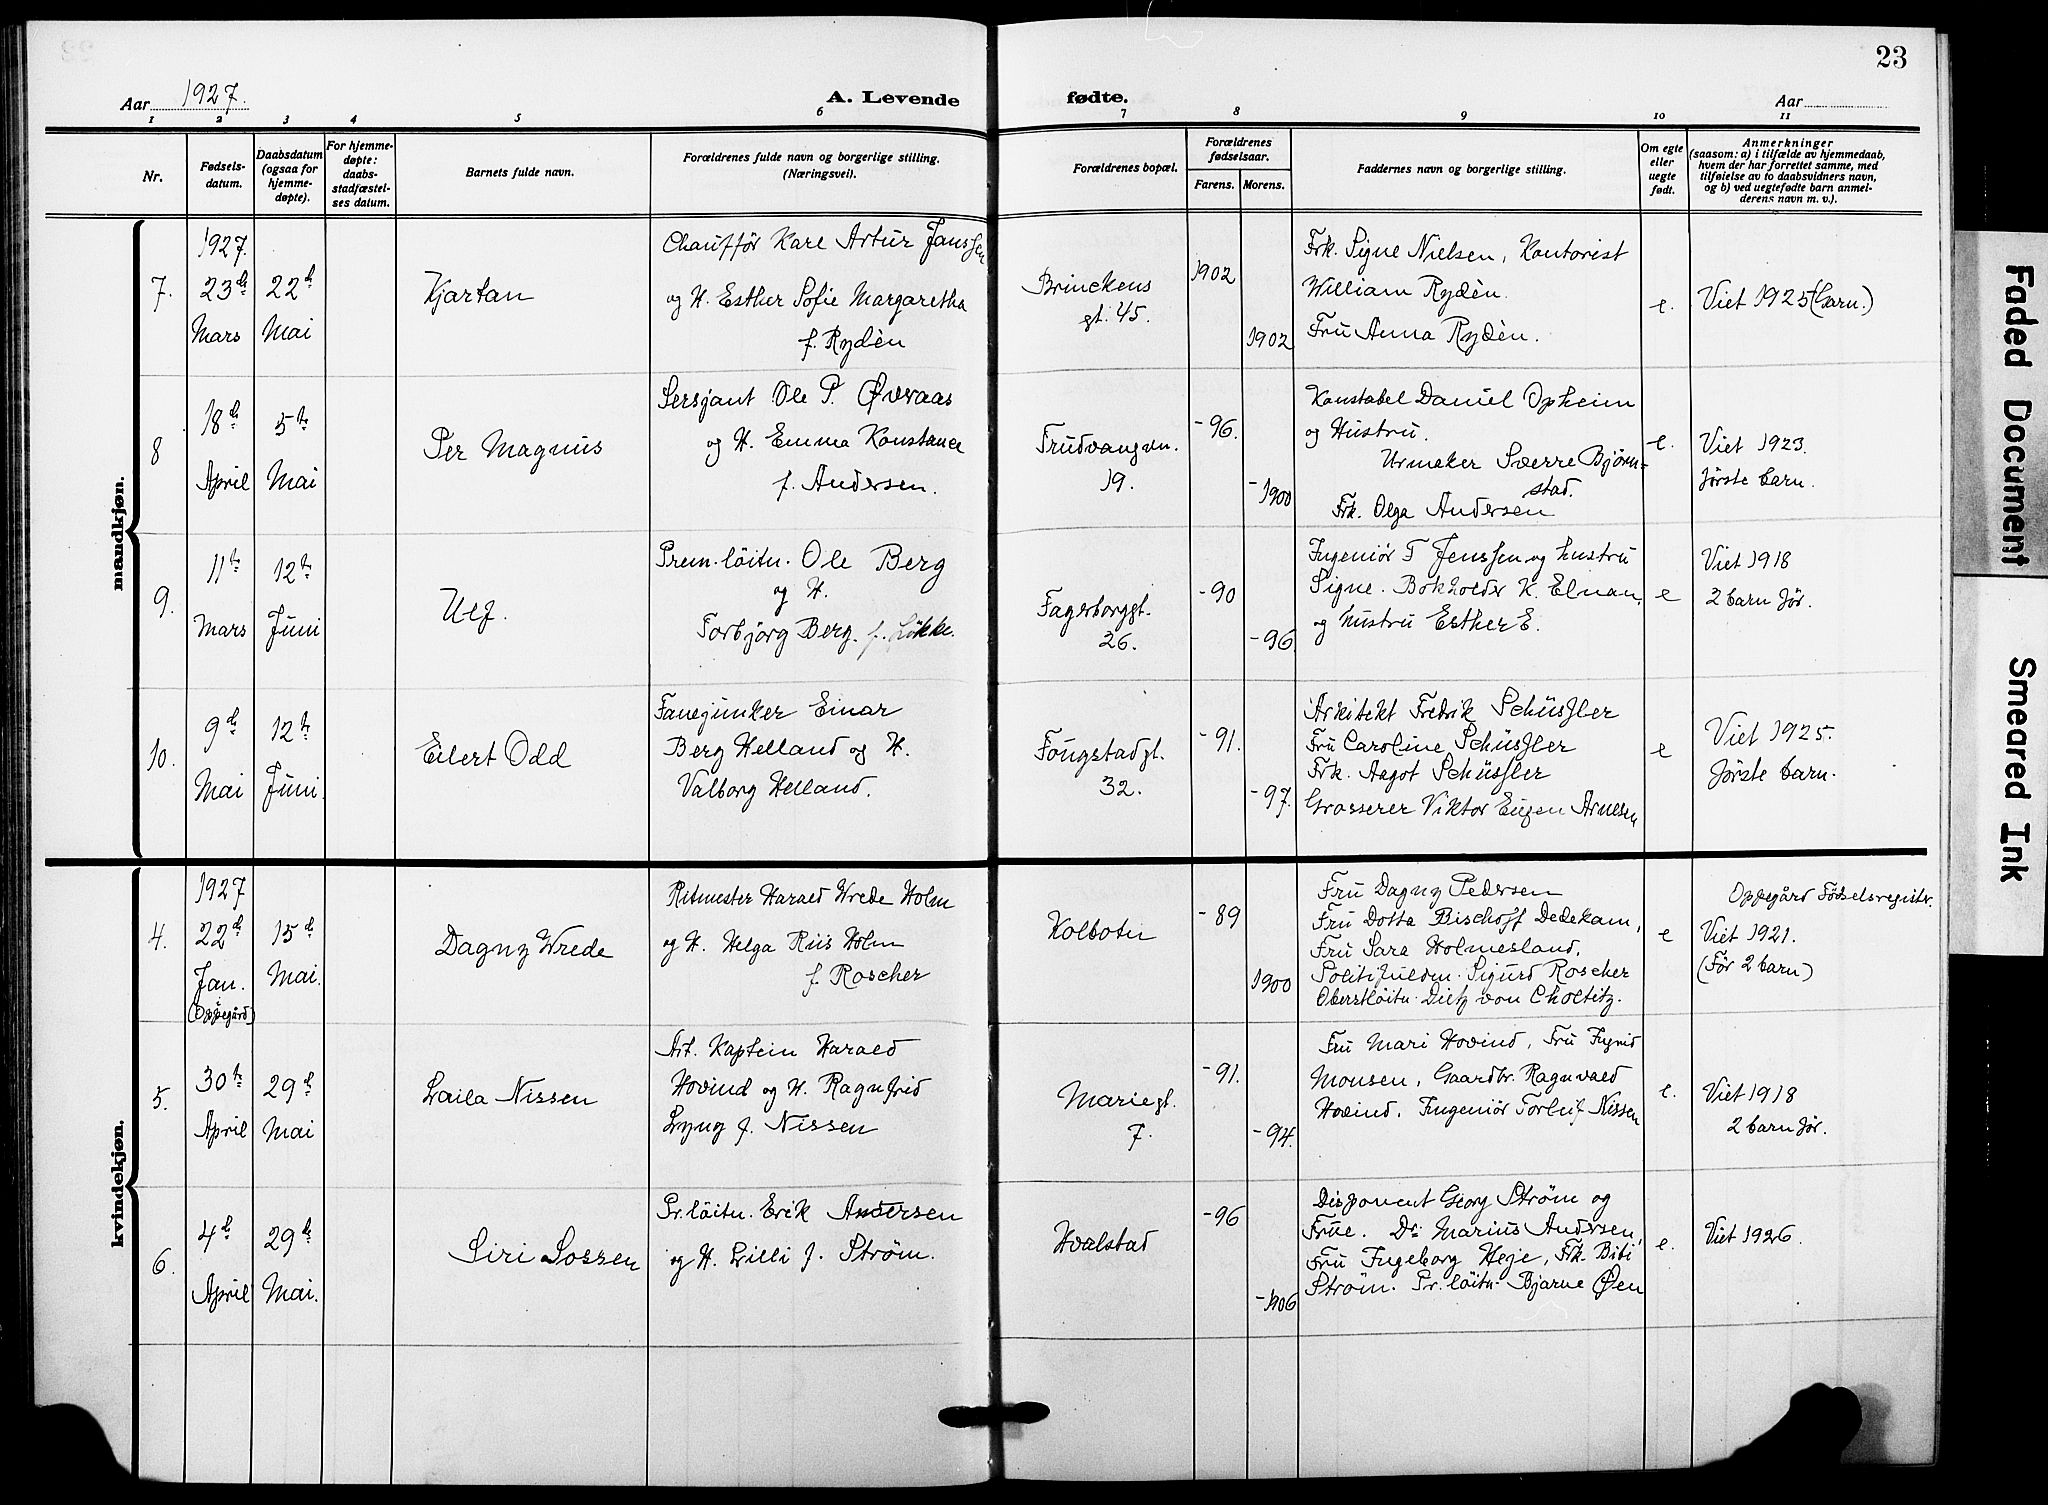 23
Aar 1927.
A. Levende fødte.
Aar
1 2 3 4 5 6 7 8 9 10 11
Nr.
Fødsels-
datum.
Daabsdatum
(ogsaa for
hjemme-
døpte).
For hjemme-
døpte:
daabs-
stadfæstel-
ses datum.
Barnets fulde navn.
Forældrenes fulde navn og borgerlige stilling.
(Næringsvei).
Forældrenes bopæl.
Forældrenes
fødselsaar.
Farens. Morens.
Faddernes navn og borgerlige stilling.
Om egte
eller
uegte
født.
Anmerkninger
(saasom: a) i tilfælde av hjemmedaab,
hvem der har forrettet samme, med
tilføielse av to daabsvidners navn,
og b) ved uegtefødte barn anmel-
derens navn m. v.).
mandkjøn.
7.
1927.
23de
Mars
22de
Mai
Kjartan
Chauffør Karl Artur Janssen
og H. Esther Sofie Margaretha
f. Rydèn
Brinckens
gt. 45.
1902
1902
Frk. Signe Nielsen, Kontorist
William Rydèn.
Fru Anna Rydèn.
e.
Viet 1925 (1barn.)
8
18de
April
5te
Mai
Per Magnus
Sersjant Ole P. Øveraas
og H. Emma Konstance
f. Andersen.
Trudvangvn.
19.
-96.
-1900
Konstabel Daniel Opheim
og Hustru.
Urmaker Sverre Bjørn-
stad.
Frk. Olga Andersen
e.
Viet 1923.
første barn.
9.
11te
Mars
12te
Juni
Ulf.
Prem.löitn. Ole Berg
og H.
Torbjörg Berg. f. Løkke.
Fagerborggt.
26.
-90
-96.
Ingeniör T Jenssen og hustru
Signe. Bokholder K. Elnan,
og hustru Esther E.
e
Viet 1918
2 barn før.
10.
9de
Mai
12te
Juni.
Eilert Odd
Fanejunker Einar
Berg Helland og H.
Valborg Helland.
Tougstadgt.
32.
-91.
-97.
Arkitekt Fredrik Schüssler
Fru Caroline Schüssler
Frk. Aagot Schüssler
Grosserer Viktor Eugen Arnesen
e
Viet 1925.
første barn.
kvindekjøn.
4.
1927
22de
Jan.
(Oppegård)
15de
Mai.
Dagny Wrede
Ritmester Harald Wrede Holm
og H. Helga Riis Holm
f. Roscher
Kolbotn
-89
1900
Fru Dagny Pedersen
Fru Dotta Bischoff Dedekam,
Fru Sara Holmesland,
Politifuldm. Sigurd Roscher
Oberstlöitn. Dietz von Choltitz.
e
Oppegård Fødselsregister.
Viet 1921.
(Før 2 barn)
5.
30te
April
29de
Mai
Laila Nissen
Art. Kaptein Harald
Hovind og H. Ragnfrid
Lyng f. Nissen
Mariegt.
7.
-91.
-94.
Fru Mari Hovind, Fru Ingrid
Monsen, Gaardbr. Ragnvald
Hovind, Ingeniör Torluf Nissen
e.
Viet 1918
2 barn før.
6.
4de
April
29de
Mai.
Siri Sossen
Pr.löitn. Erik Andersen
og H. Lilli f. Strøm.
Hvalstad
-96
-1906
Disponent Georg Strøm og
Frue. Dr. Marius Andersen,
Fru Ingeborg Heje, Frk. Bibi
Strøm. Pr. löitn. Bjarne Øen
e.
Viet 1926.
Faded Document
Smeared Ink